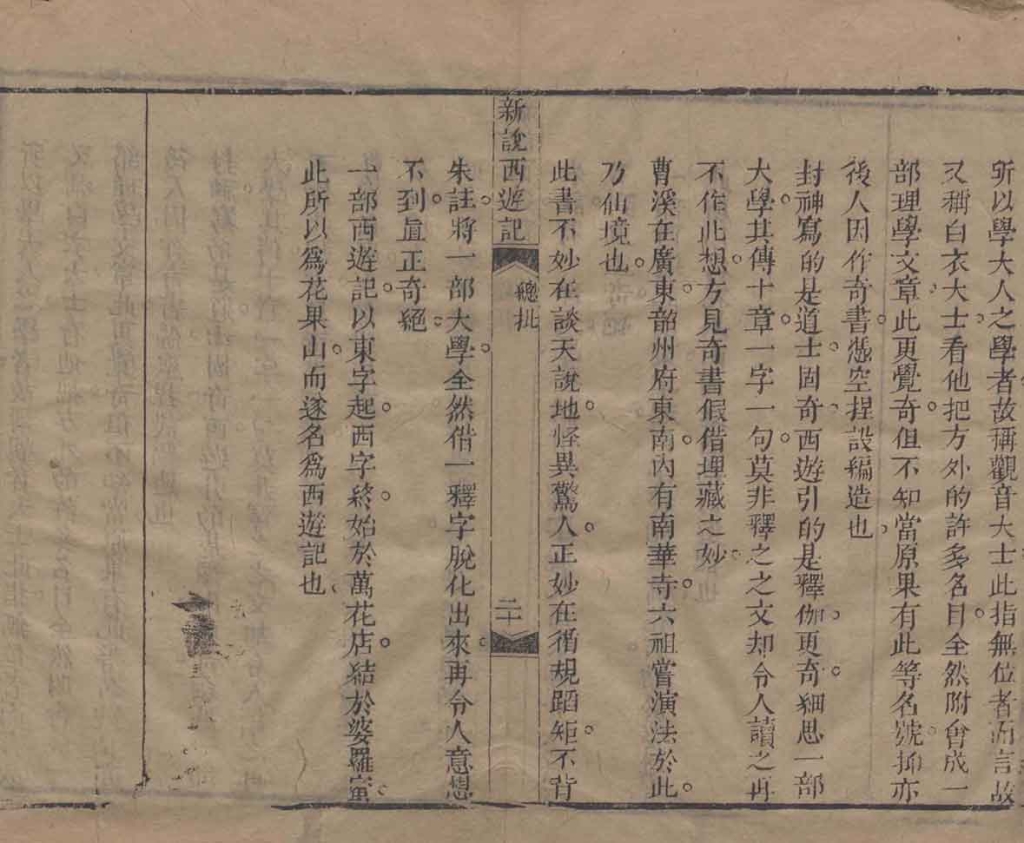 所以學大人之學者故稱觀音大士此指無位者而言故
又稱白衣大士看他把方外的許多名目全然附會成一
部理學文章此更覺奇但不知當原果有此等名號抑亦
後人因作奇書憑空揑設稱造也
封神寫的是道士固奇西遊引的是釋伽更奇細思一部
大學其傳十章一字一句莫非釋之之文却令人讀之再
不作此想方見奇書假借埋藏之妙
曹溪在廣東韶州府東南內有南華寺六祖嘗演法於此
乃仙境也
此書不妙在談天說地怪異驚人正妙在循規蹈矩不背
新說西遊記
總批
二十
朱註將一部大學全然借一釋字脫化出來再令人意想
不到眞正奇絕
一部西遊記以東字起西字終始於萬花店結於婆羅蜜
此所以爲花果山而遂名爲西遊記也